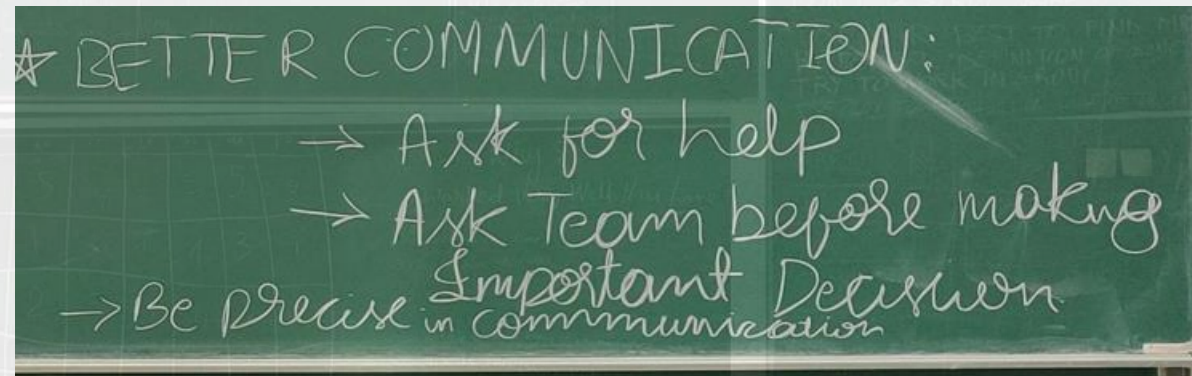 ☆ BETTER COMMUNICATION:
→ Ask for help
→ Ask Team before making
Important Decision
→ Be precise in communication